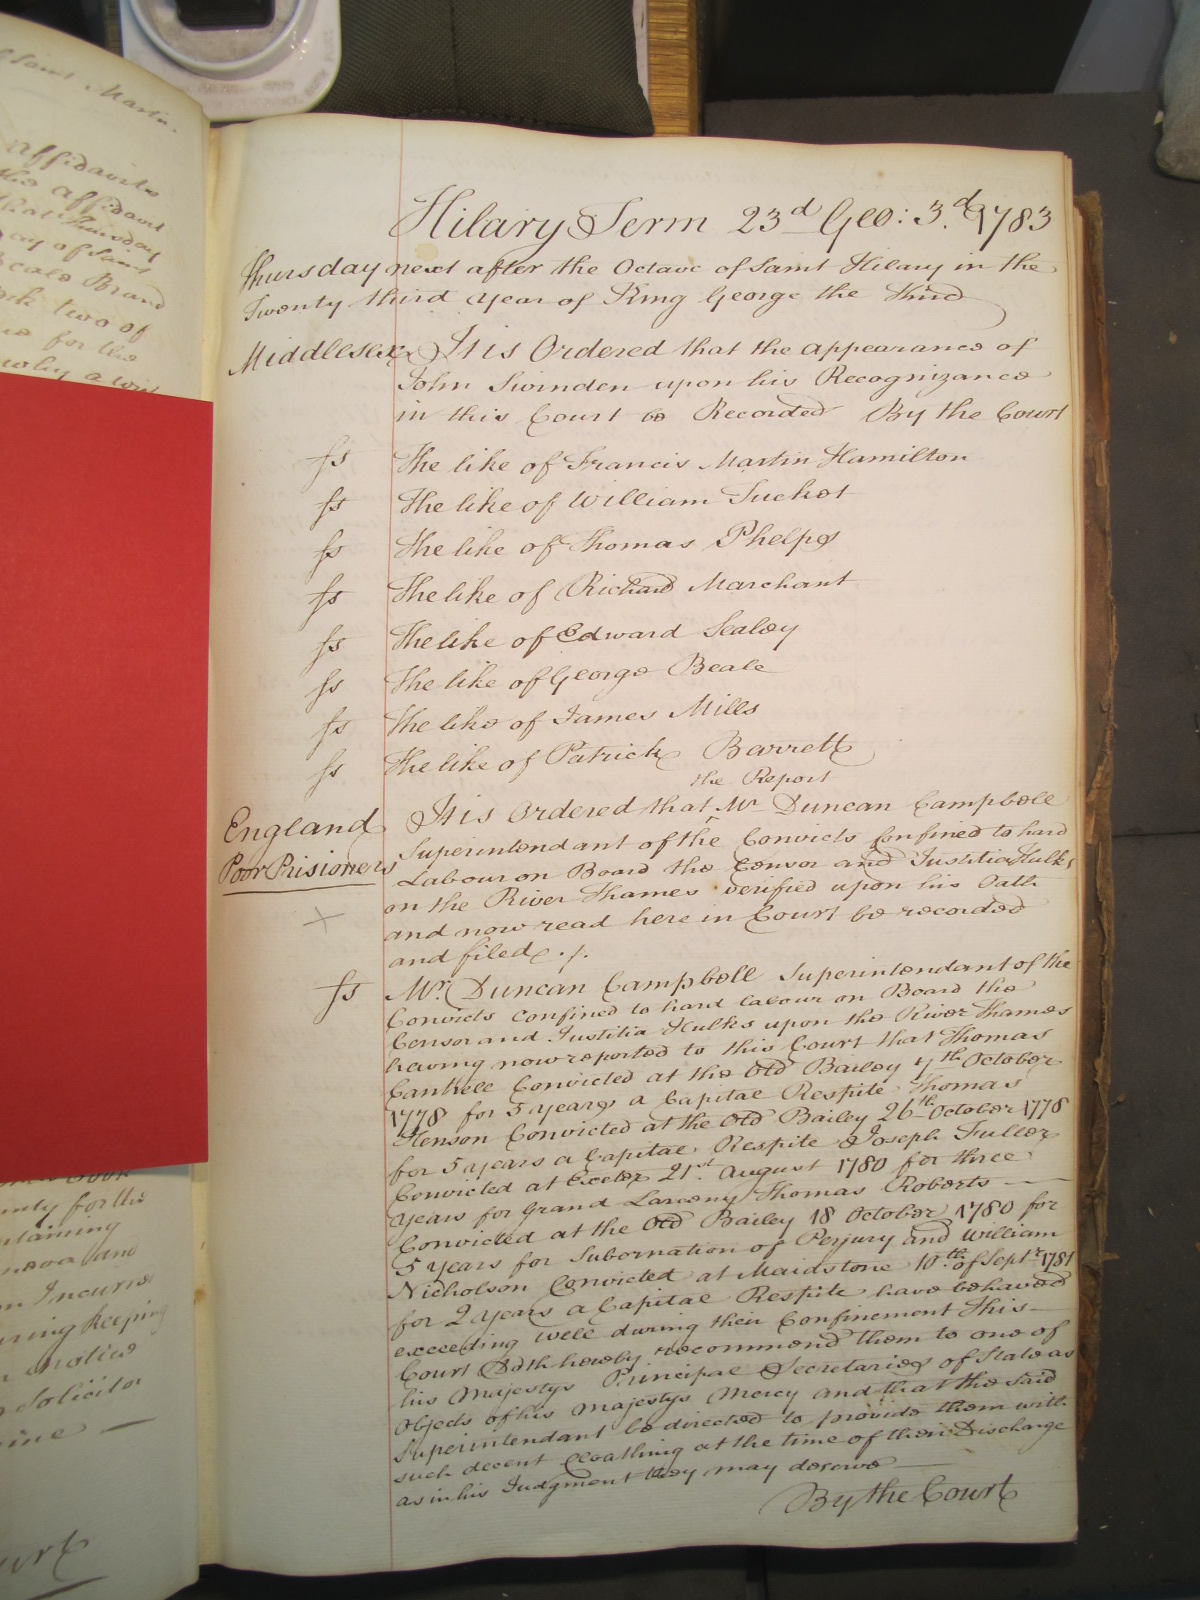 Saint Martin
affidavits
the affidavit
that Thursday
day of Saint
Beale Brand
two of
for the
why a writ
Hilary Term 23d Geo: 3.d 1783
Thursday next after the Octave of Saint Hilary in the
Twenty third year of King George the Third
Middlesex It is Ordered that the appearance of
John Swinden upon his Recognizance
in this Court be Recorded By the Court
ss The like of Francis Martin Hamilton
ss The like of William Tucket
ss The like of Thomas Phelps
ss The like of Richard Marchant
ss The like of Edward Sealey
ss The like of George Beale
ss The like of James Mills
ss The like of Patrick Barrett
the Report
England It is Ordered that ^ Mr Duncan Campbell
Superintendant of the Convicts Confined to hard
Poor Prisioners Labour on Board the Censor and Justitia Hulks
on the River Thames verified upon his Oath
and now read here in Court be recorded
and filed ./.
ss Mr. Duncan Campbell Superintendant of the
Convicts confined to hard labour on Board the
Censor and Justitia Hulks upon the River Thames
having now reported to this Court that Thomas
Cantrell Convicted at the Old Bailey 7th October
1778 for 5 years a Capital Respite Thomas
Henson Convicted at the Old Bailey 26th October 1778
for 5 years a Capital Respite Joseph Fuller
Convicted at Exeter 21st August 1780 for three
years for Grand Larceny Thomas Roberts
Convicted at the Old Bailey 18 October 1780 for
5 years for Subornation of Perjury and William
Nicholson Convicted at Maidstone 10th of Septr 1781
for 2 years a Capital Respite have behaved
exceeding well during their Confinement This
Court Doth hereby recommend them to one of
his Majestys Principal Secretaries of State as
Objects of his Majestys Mercy and that the said
Superintendant be directed to provide them with
such decent Cloathing at the time of their Discharge
as in his Judgment they may deserve
By the Court
for the
and
Incurid
keeping
notice
Solicitor